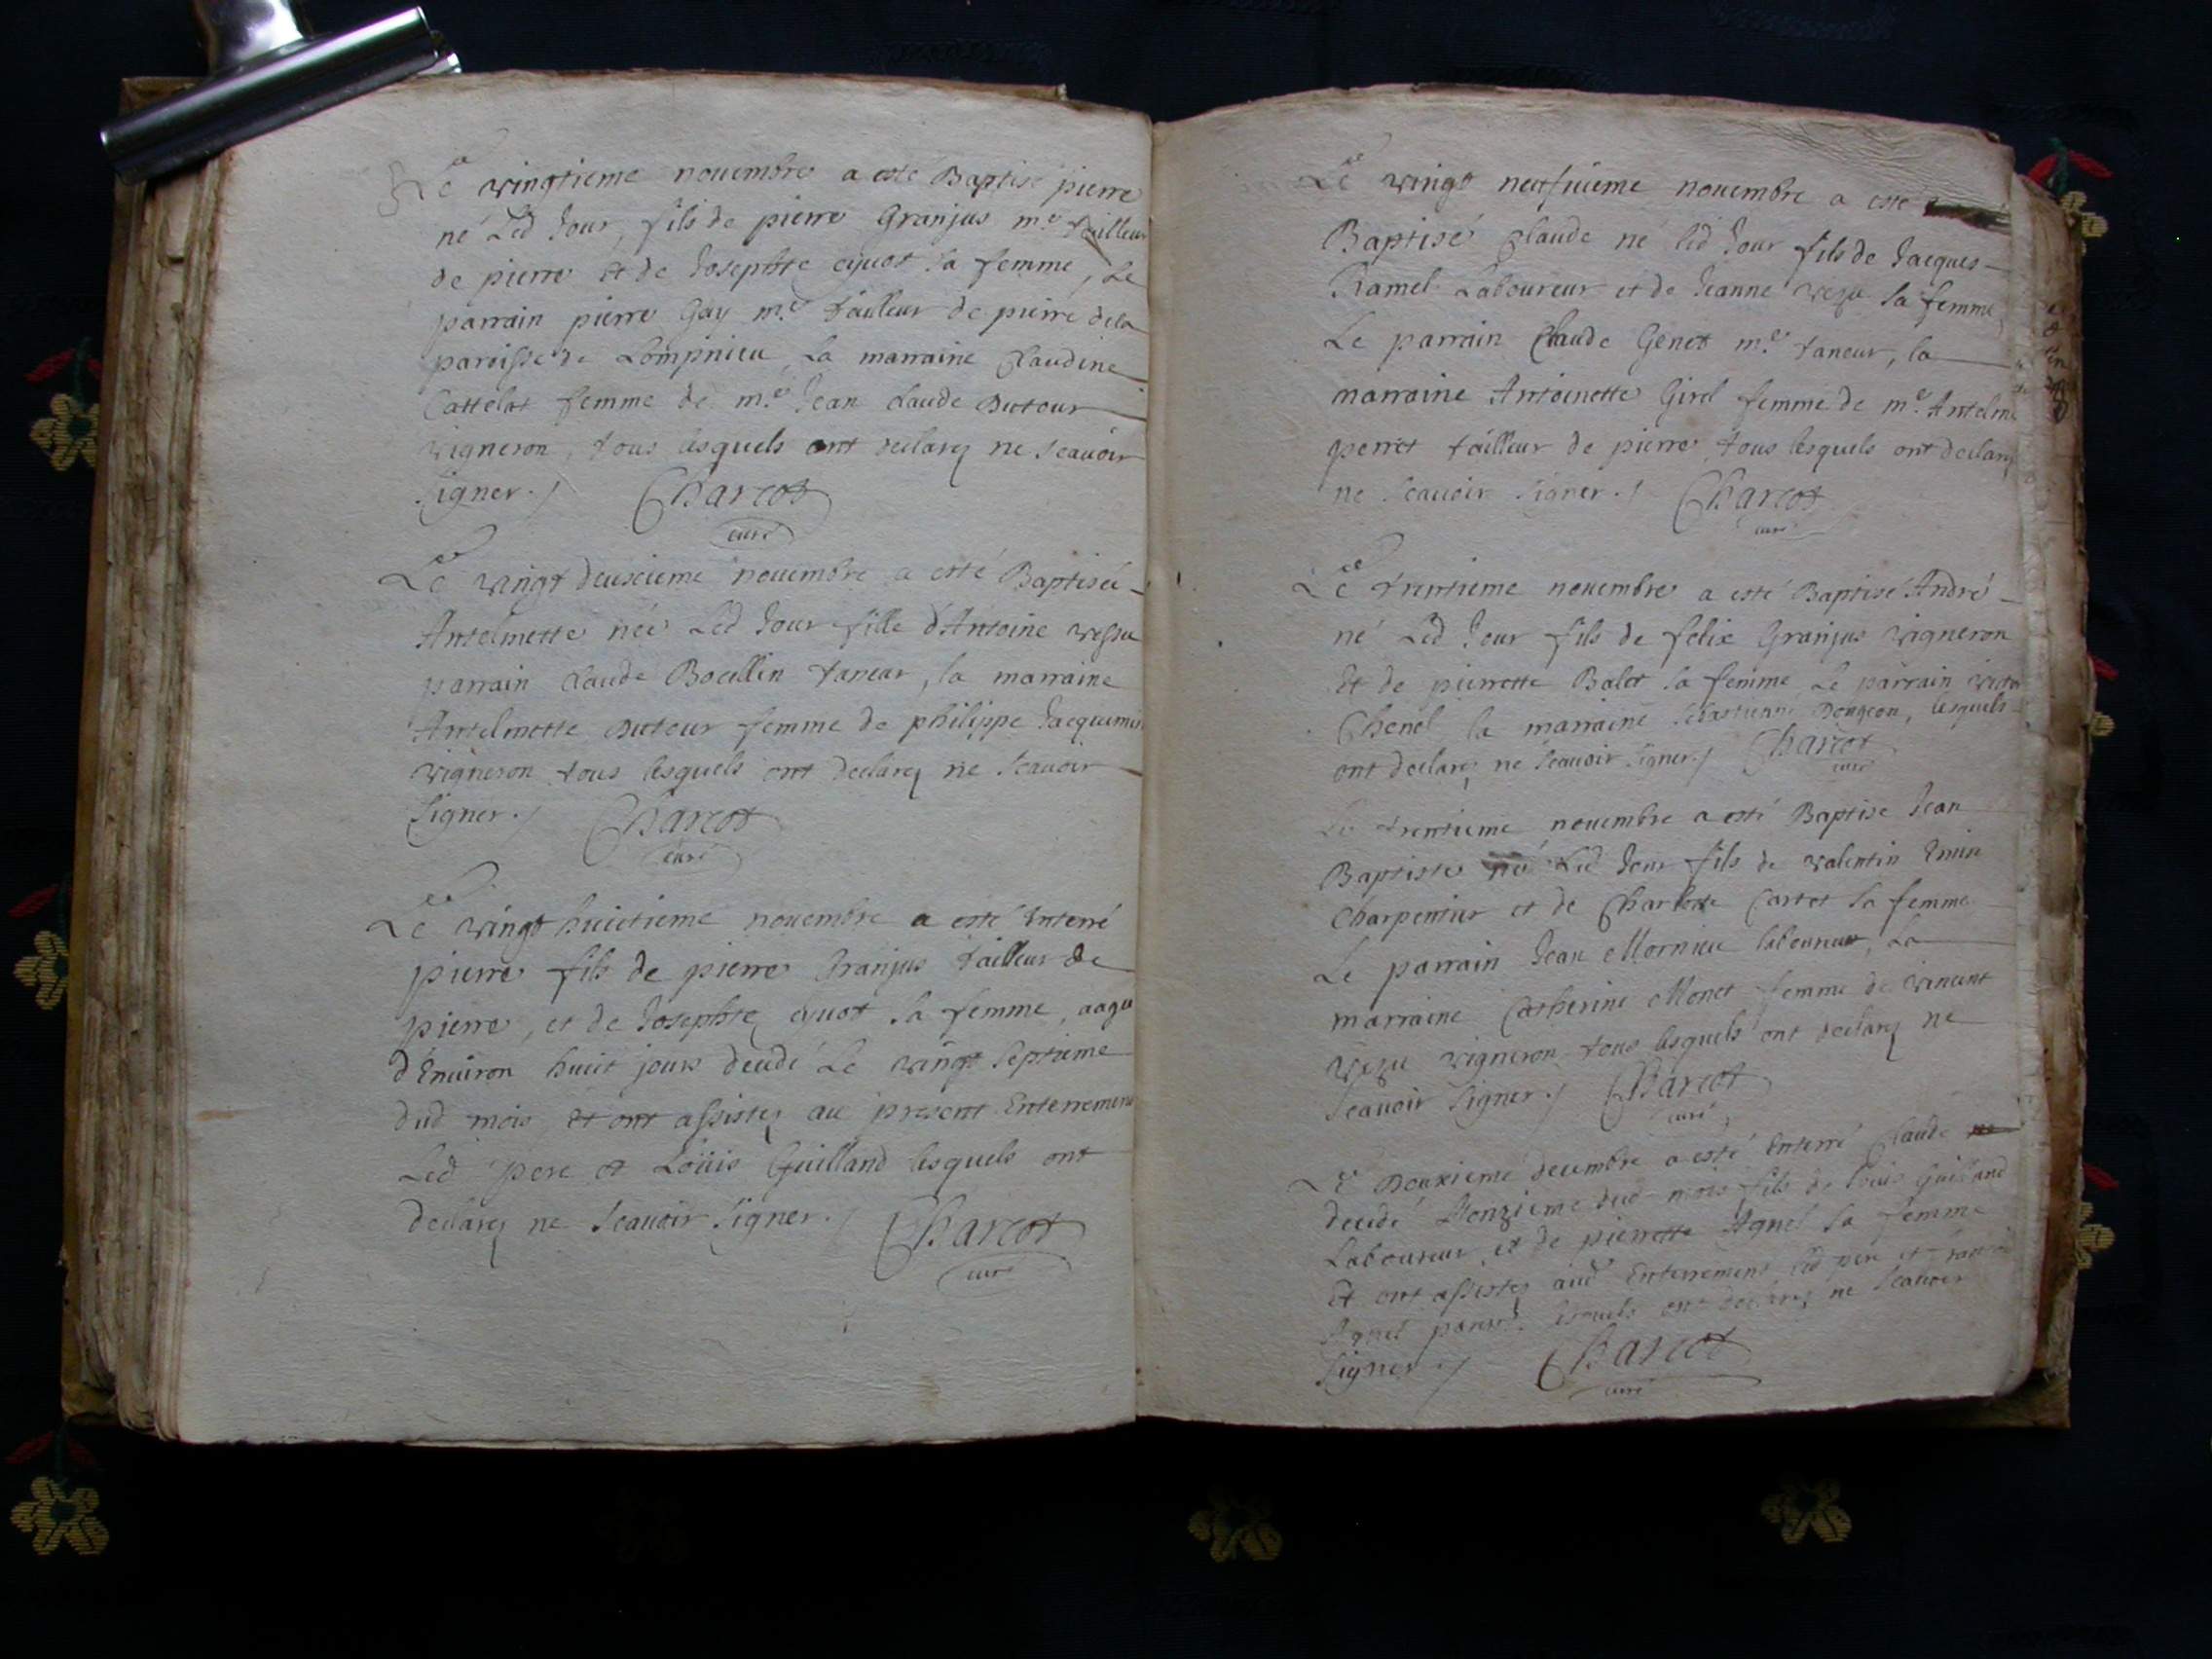 Le vingtieme nouembre a esté Baptisé pierre
né Led Jour, fils de pierre Granjus me tailleur
de pierre et de Josephte Cyuot sa femme, Le
parrain pierre Gay me tailleur de pierre dela
paroisse de Lompnieu La marraine Claudine
Cattelot femme de me Jean Claude Dutour
vigneron, tous lesquels ont declarez ne scauoir
signer./ Charcot
curé
Le vingt deuxieme nouembre a esté Baptisée
Antelmette née Led Jour fille d'Antoine
parrain Claude Bocllin taneur, la marraine
Antelmette Dutour femme de philippe Jacquemet
vigneron tous lesquels ont declarez ne scauoir
signer./ Charcot
curé
Le vingt huictieme nouembre a esté Enterré
pierre fils de pierre Granjus tailleur de
pierre, et de Josephte Cyuot sa femme, aagé
d'Enuiron huit jours decedé Le vingt septieme
dud mois, et ont assistez au present Enterrement
Led pere et Loüis Guilland lesquels ont
declarez ne scauoir signer./ Charcot
curé
Le vingt neufuieme nouembre a esté
Baptisé Claude né led Jour fils de Jacques
Ramel Laboureur et de Jeanne vezu sa femme,
Le parrain Claude Genet me taneur, la
marraine Antoinette Girel femme de me Antelme
perret tailleur de pierre tous lesquels ont declarez
ne scauoir signer./ Charcot
curé
Le trentieme nouembre a esté Baptisé André
né Led Jour fils de felix Granjus vigneron
Et de pierrette Balet sa femme Le parrain
Chenel la marraine sebastienne Dongeon, lesquels
ont declarez ne scauoir signer./ Charcot
curé
Le trentieme nouembre a esté Baptisé Jean
Baptiste né Led Jour fils de valentin Emin
Charpentier et de Charlotte Cartet sa femme
Le parrain Jean Mornieu laboureur, La
marraine Catherine Monet femme de vincent
vezu vigneron tous lesquels ont declarez ne
scauoir signer./ Charcot
curé
Le Deuxieme decembre a esté Enterré Claude
decedé dud mois fils de Louis Guilland
Laboureur, et de pierrette Agnel sa femme
Et ont assistez aud Enterrement led pere et
Agnel lesquels ont declarez ne scauoir
signer./ Charcot
curé